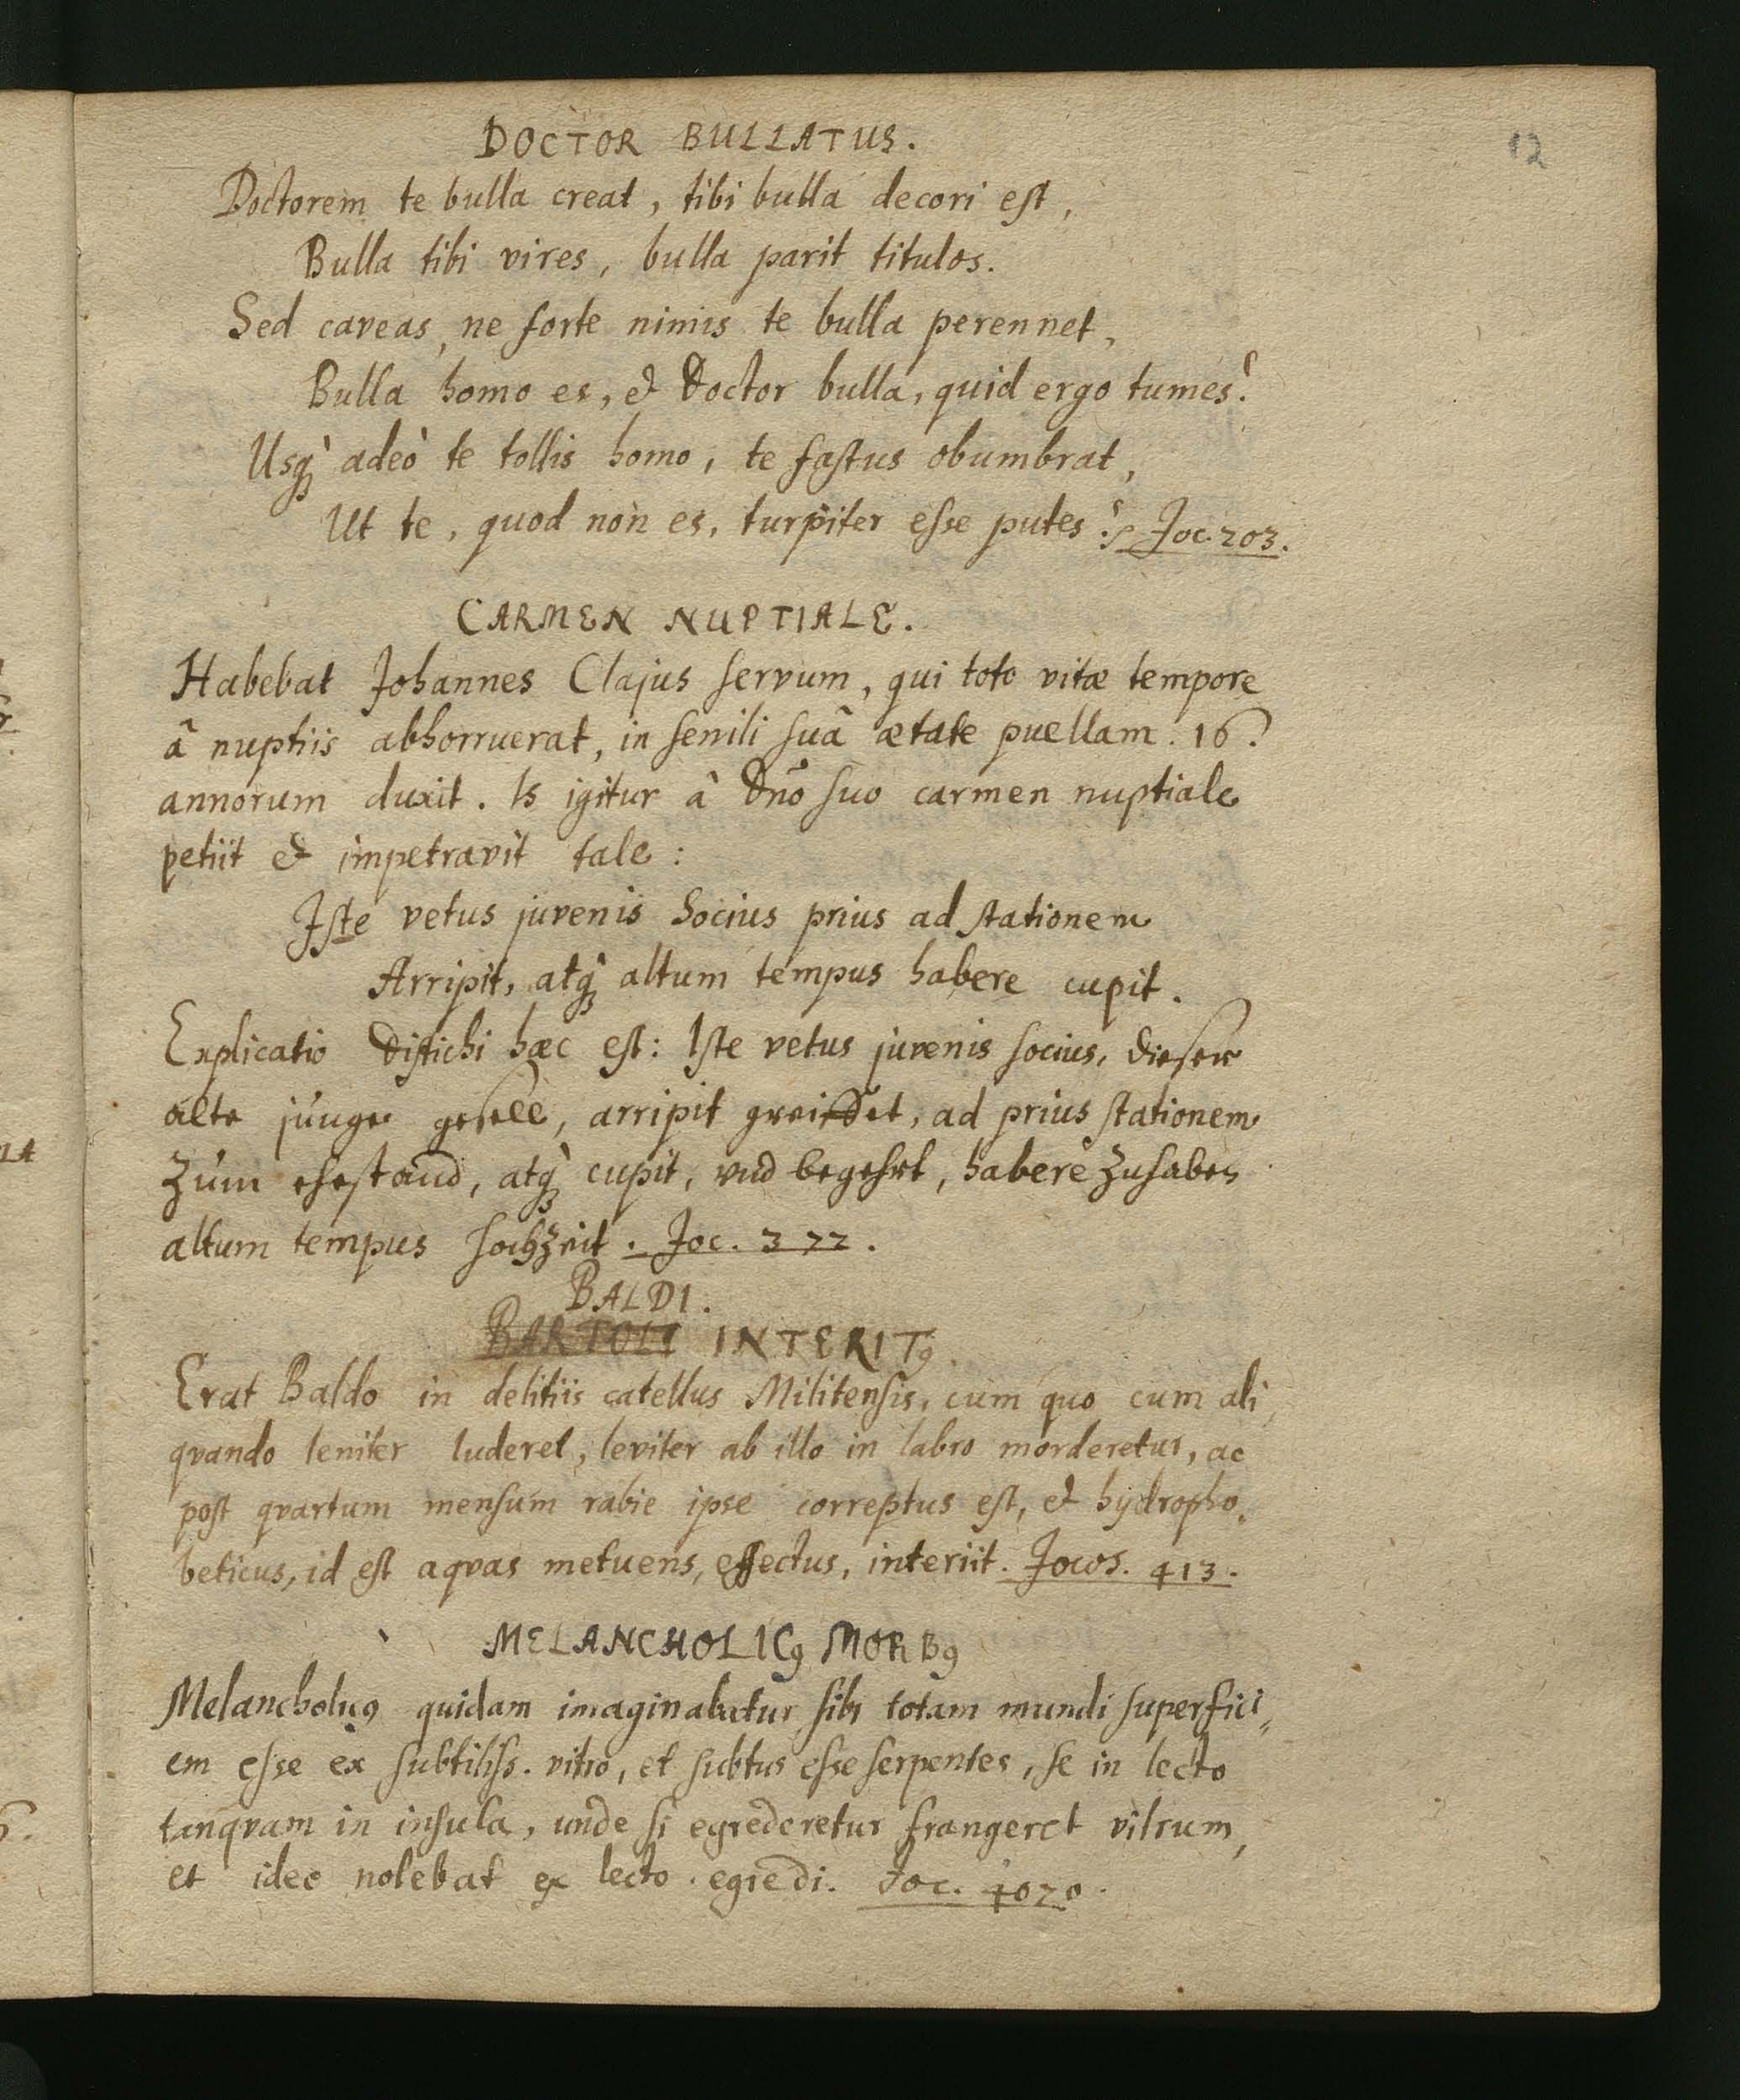 12
DOCTOR BULLATUS.
Doctorem te bulla creat, tibi bulla decori est,
Bulla tibi vires, bulla parit titulos.
Sed caveas, ne forte nimis te bulla perennet,
Bulla homo es, & Doctor bulla, quid ergo tumes?
Usq́ adeò te tollis homo, te fastus obumbrat,
Ut te, quod non es, turpiter esse putes? Joc. 203.
CARMEN NUPTIALE.
Habebat Johannes Clajus servum, qui toto vitæ tempore
â nuptiis abhorruerat, in senili suâ ætate puellam. 16.
annorum duxit. Is igitur â Dn̄o suo carmen nuptiale
petiit & impetravit tale:
Iste vetus juvenis Socius prius ad stationem
Arripit, atq́ altum tempus habere cupit.
Explicatio Distichi hæc est: Iste vetus juvenis socius, dieser
alte junge gesell, arripit greiffet, ad prius stationem
zum ehestand, atq́ cupit, vnd begehrt, habere zuhaben
altum tempus hochzeit. Joc. 372.
BALDI.
BARTOLI INTERITꝰ
Erat Baldo in delitiis catellus Militensis, cum quo cum ali,
qvando leniter luderet, leviter ab illo in labro morderetur, ac
post qvartum mensum rabie ipse correptus est, & hydropho,
beticus, id est aqvas metuens, effectus, interiit. Jocos. 413.
MELANCHOLICꝰ MORBꝰ
Melancholicꝰ quidam imaginabatur sibi totam mundi superfici,,
em esse ex subtiliss. vitro, et subtus esse serpentes, se in lecto
tanqvam in insula, unde si egrederetur frangeret vitrum,
et ideo nolebat ex lecto egredi. Joc. 4020.